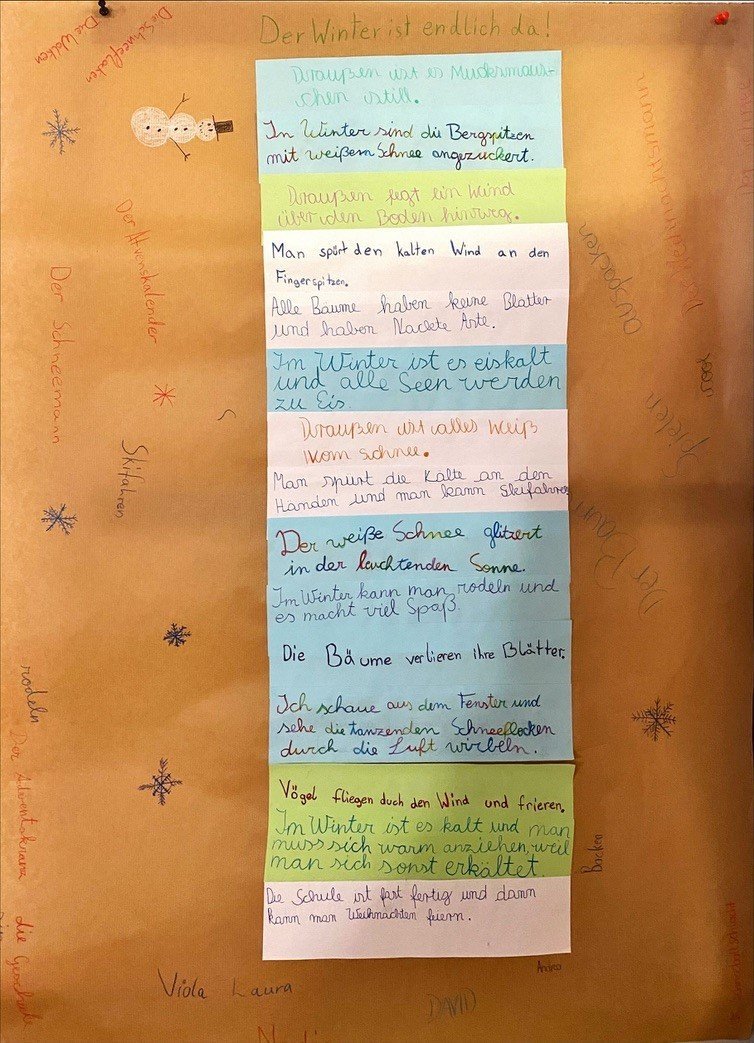 Der Winter ist endlich da!
Draußen ist es Mucksmäus-
chen still.
Im Winter sind die Bergspitzen
mit weißem Schnee angezuckert.
Draußen fegt ein Wind
über den Boden hinweg.
Man spürt den kalten Wind an den
Fingerspitzen.
Alle Bäume haben keine Blätter
und haben Nackte Äste.
Im Winter ist es eiskalt
und alle Seen werden
zu Eis.
Draußen ist alles weiß
vom schnee.
Man spürt die Kälte an den
Händen und man kann Skifahren
Der weiße Schnee glitzert
in der leuchtenden Sonne.
Im Winter kann man rodeln und
es macht viel Spaß.
Die Bäume verlieren ihre Blätter.
Ich schaue aus dem Fenster und
sehe die tanzenden Schneeflocken
durch die Luft wirbeln.
Vögel fliegen duch den Wind und frieren.
Im Winter ist es kalt und man
muss sich warm anziehen, weil
man sich sonst erkältet
Die Schule ist fast fertig und dann
kann man Weihnachten feiern.
Die Wolken
Die Schneefloken
Der Advenskalender
Der Schneemann
Skifahren
rodeln
Der Adventskranz
die Geschenke
auspacken
Der Weihnachtsmann
Spielen
Der Baum
Backen
Viola
Laura
DAVID
Andrea